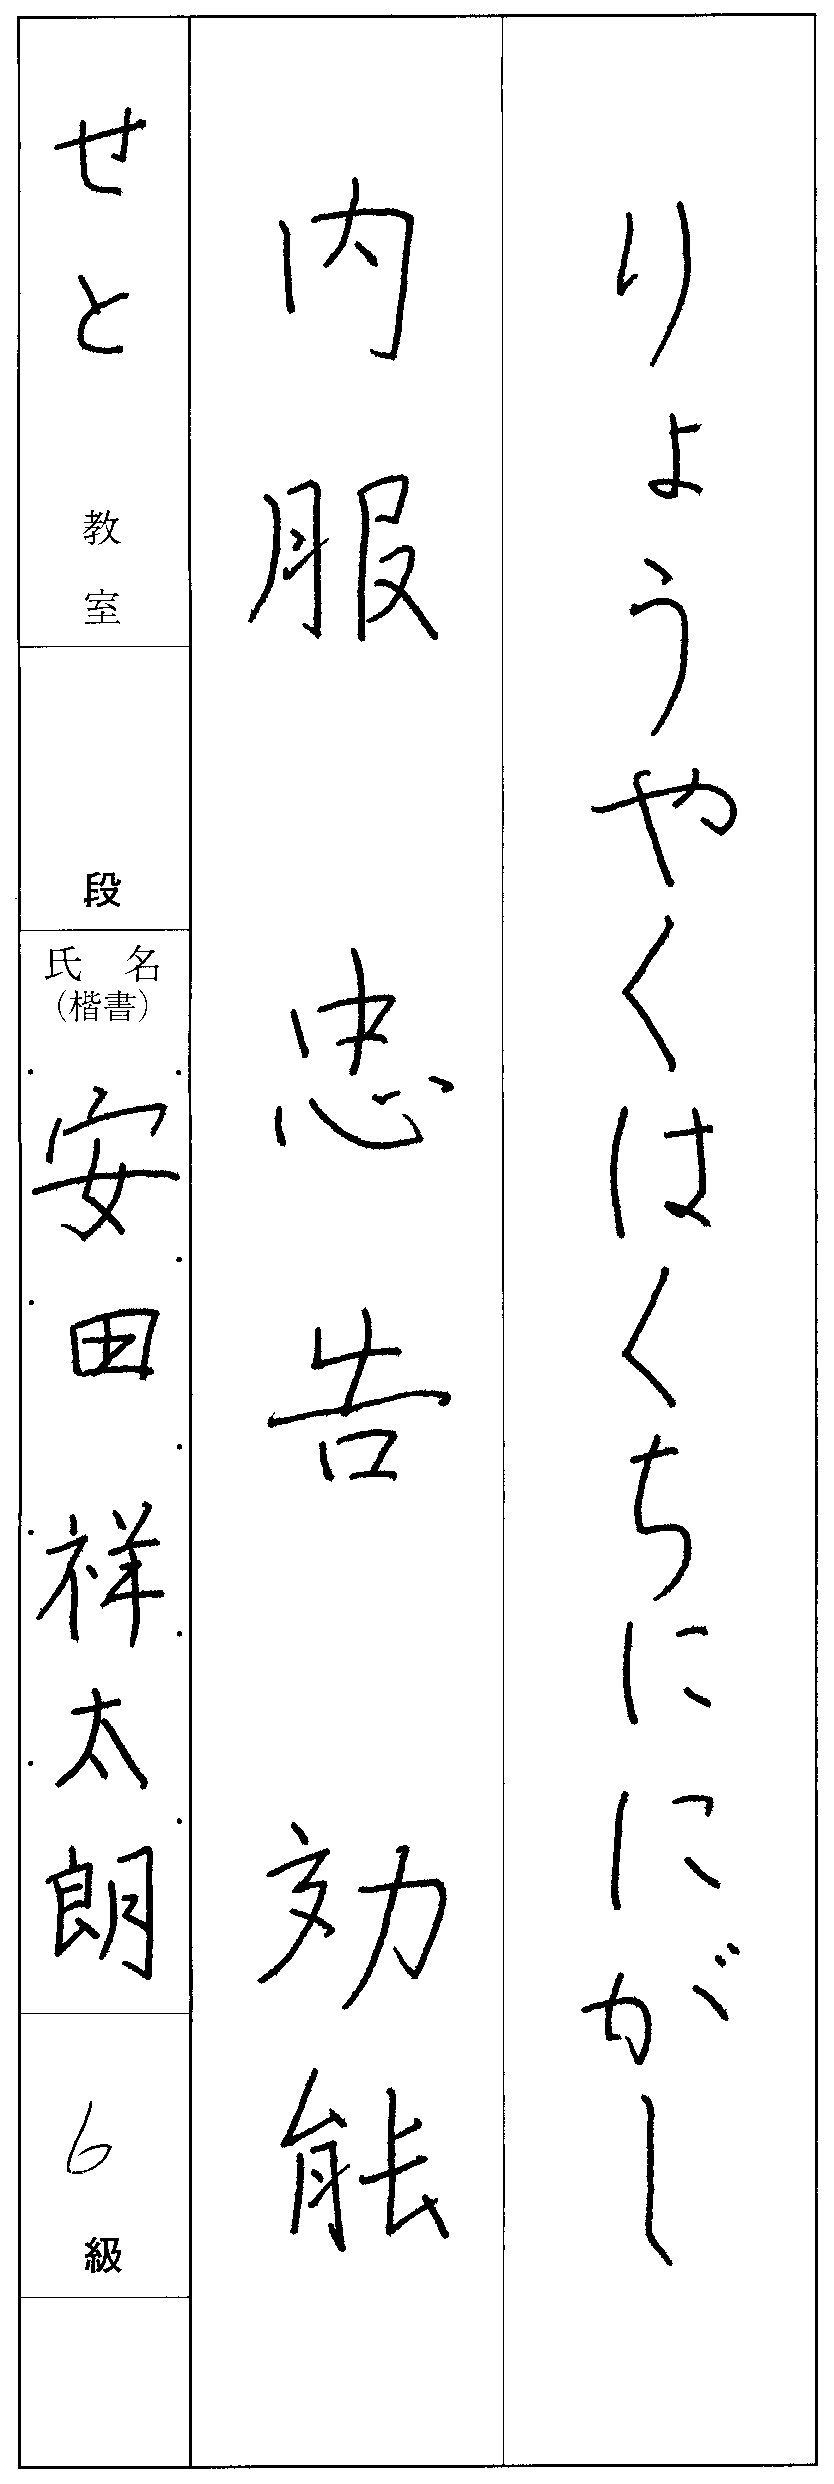 りょうやくはくちににがし
内服 忠告 効能
せと教室
段
氏名
(楷書)
安田祥太朗
6級